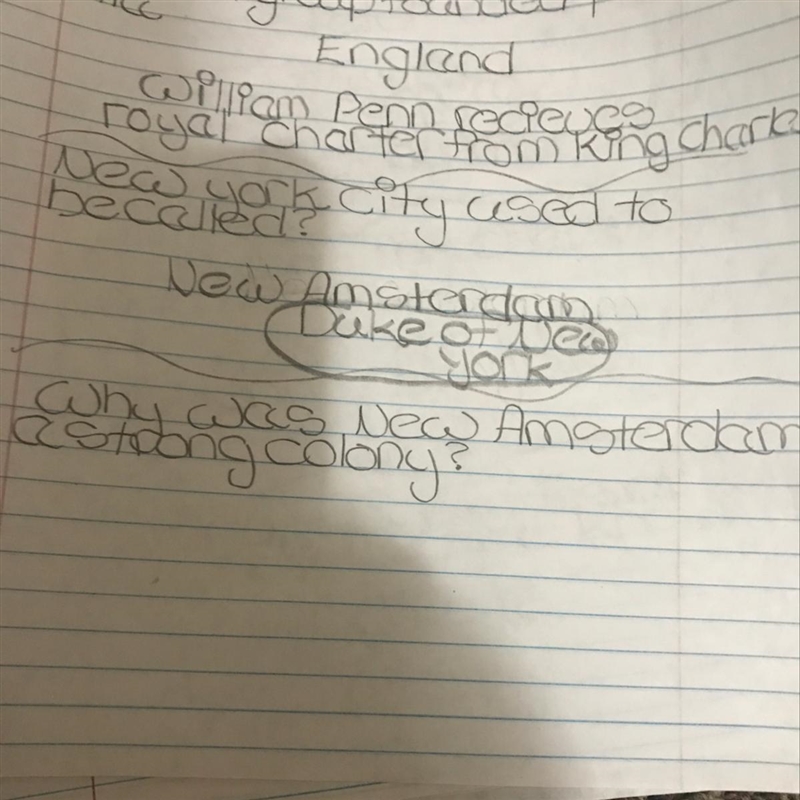 England
William Penn recieves
royal charter from King Charle
New york city used to
be called?
New Amsterdam
Duke of New
york
Why was New Amsterdam
a strong colony?